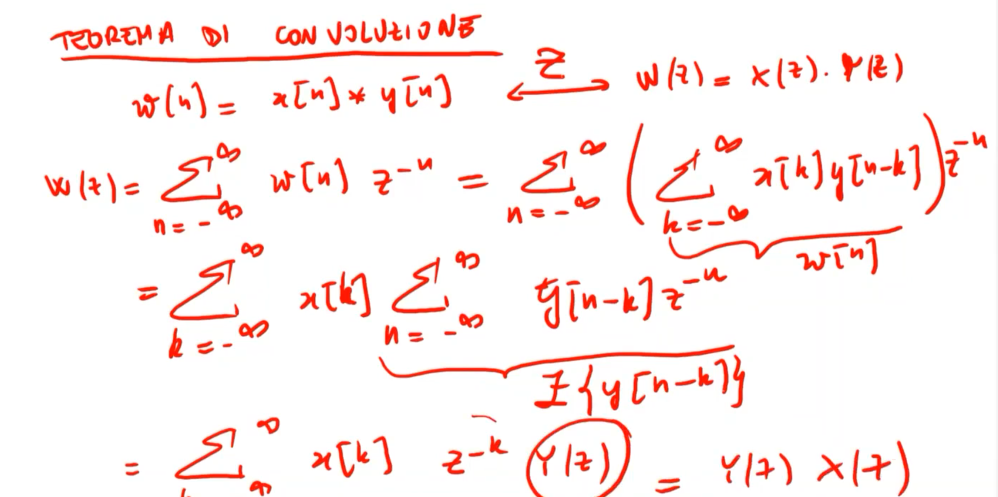 TEOREMA DI CONVOLUZIONE
w[n] = x[n] * y[n] ⟷ Z W(z) = X(z) · Y(z)
W(z) = ∑_{n=-∞}^{∞} w[n] z^{-n} = ∑_{n=-∞}^{∞} ( ∑_{k=-∞}^{∞} x[k] y[n-k] ) z^{-n}
w[n]
= ∑_{k=-∞}^{∞} x[k] ∑_{n=-∞}^{∞} y[n-k] z^{-n}
Z{y[n-k]}
= ∑_{k=-∞}^{∞} x[k] z^{-k} Y(z) = Y(z) X(z)